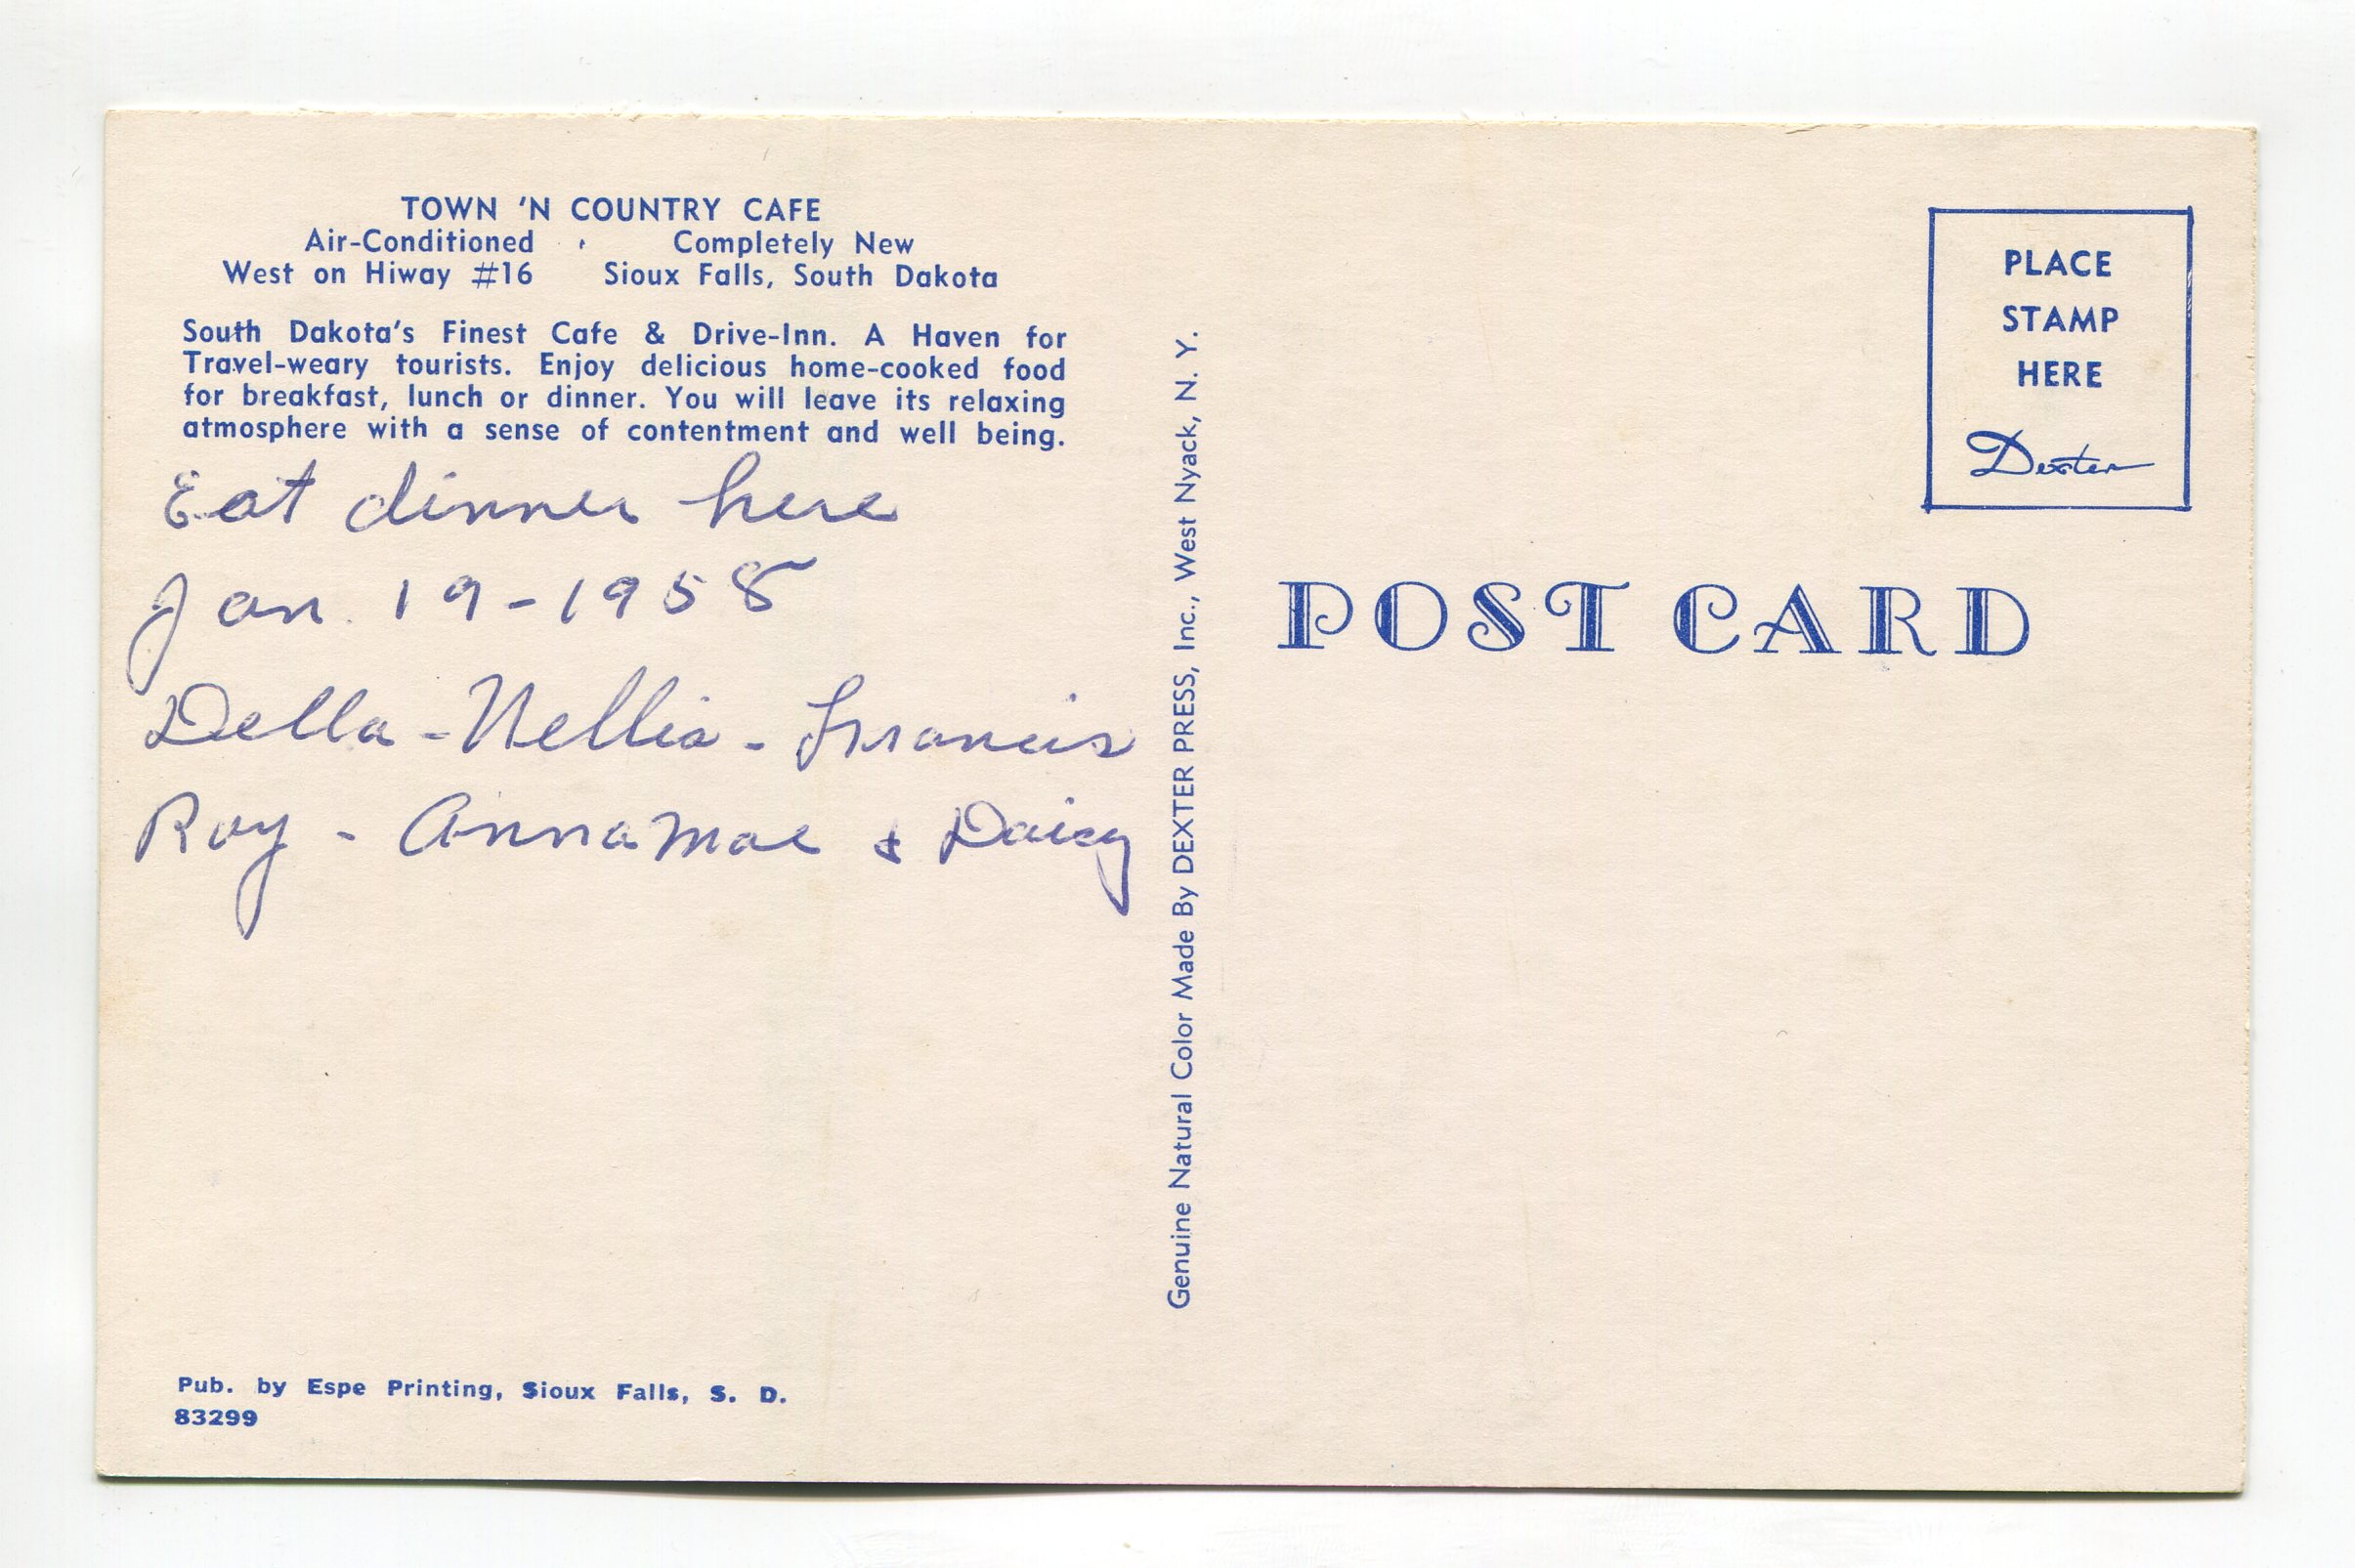 TOWN 'N COUNTRY CAFE
Air-Conditioned Completely New
West on Hiway #16 Sioux Falls, South Dakota
South Dakota's Finest Cafe & Drive-Inn. A Haven for
Travel-weary tourists. Enjoy delicious home-cooked food
for breakfast, lunch or dinner. You will leave its relaxing
atmosphere with a sense of contentment and well being.
Eat dinner here
Jan. 19-1958
Della - Nellie - Francis
Roy - Anna Mae & Daisy
Pub. by Espe Printing, Sioux Falls, S. D.
83299
Genuine Natural Color Made By DEXTER PRESS, Inc., West Nyack, N. Y.
PLACE
STAMP
HERE
Dexter
POST CARD